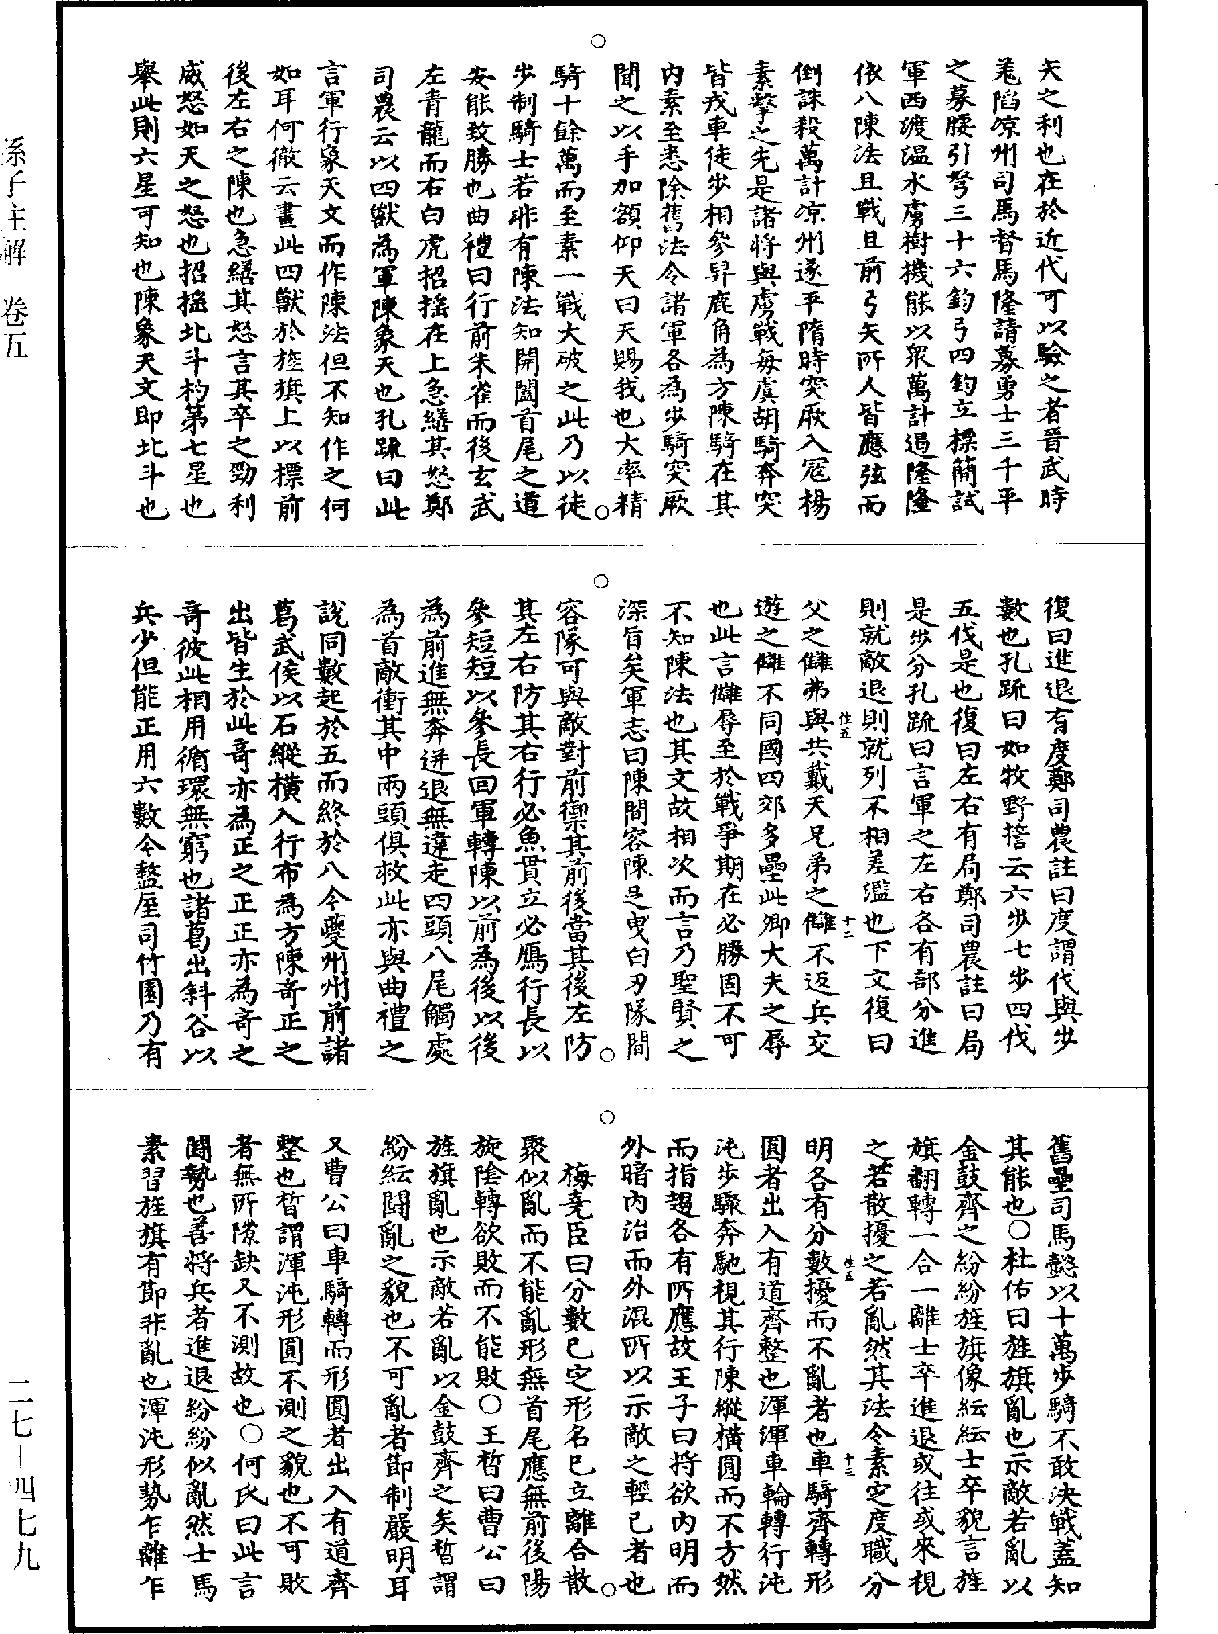 矢之利也在於近代可以驗之者晉武時
羌陷凉州司馬督馬隆請募勇士三千平
之募腰引弩三十六鈞弓四鈞立標簡試
軍西渡温水虜樹機能以衆萬計遏隆隆
依八陳法且戰且前弓矢所人皆應弦而
倒誅殺萬計凉州遂平隋時突厥入冦楊
素擊之先是諸將與虜戰每虞胡騎奔突
皆戎車徒步相參舁鹿角為方陳騎在其
内素至悉除舊法令諸軍各為步騎突厥
聞之以手加額仰天曰天賜我也大率精
騎十餘萬而至素一戰大破之此乃以徒
步制騎士若非有陳法知開闔首尾之道
安能致勝也曲禮曰行前朱雀而後玄武
左青龍而右白虎招摇在上急繕其怒鄭
司農云以四獸為軍陳象天也孔疏曰此
言軍行象天文而作陳法但不知作之何
如耳何徹云畫此四獸於旌旗上以標前
後左右之陳也急繕其怒言其卒之勁利
威怒如天之怒也招摇北斗杓第七星也
舉此則六星可知也陳象天文即北斗也
復曰進退有度鄭司農註曰度謂伐與步
數也孔疏曰如牧野誓云六步七步四伐
五伐是也復曰左右有局鄭司農註曰局
是步分孔疏曰言軍之左右各有部分進
則就敵退則就列不相差濫也下文復曰
父之讎弗與共戴天兄弟之讎不返兵交
遊之讎不同國四郊多壘此卿大夫之辱
也此言讎辱至於戰爭期在必勝固不可
不知陳法也其文故相次而言乃聖賢之
深旨矣軍志曰陳間容陳足曳白刃隊間
容隊可與敵對前禦其前後當其後左防
其左右防其右行必魚貫立必鴈行長以
參短短以參長回軍轉陳以前為後以後
為前進無奔迸退無違走四頭八尾觸處
為首敵衝其中兩頭俱救此亦與曲禮之
說同數起於五而終於八今夔州州前諸
葛武侯以石縱橫入行布為方陳奇正之
出皆生於此奇亦為正之正正亦為奇之
奇彼此相用循環無窮也諸葛出斜谷以
兵少但能正用六數今盩厔司竹園乃有
舊壘司馬懿以十萬步騎不敢決戰蓋知
其能也○杜佑曰旌旗亂也示敵若亂以
金鼓齊之紛紛旌旗像紜紜士卒貌言旌
旗翻轉一合一離士卒進退或往或來視
之若散擾之若亂然其法令素定度職分
明各有分數擾而不亂者也車騎齊轉形
圓者出入有道齊整也渾渾車輪轉行沌
沌步驟奔馳視其行陳縱橫圓而不方然
而指趨各有所應故王子曰將欲内明而
外暗内治而外混所以示敵之輕已者也
梅堯臣曰分數已定形名已立離合散
聚似亂而不能亂形無首尾應無前後陽
旋陰轉欲敗而不能敗○王晳曰曹公曰
旌旗亂也示敵若亂以金鼓齊之矣晳謂
紛紜鬪亂之貌也不可亂者節制嚴明耳
又曹公曰車騎轉而形圓者出入有道齊
整也晳謂渾沌形圓不測之貌也不可敗
者無所隙缺又不測故也○何氏曰此言
鬪勢也善將兵者進退紛紛似亂然士馬
素習旌旗有節非亂也渾沌形勢乍離乍
性五
十二
性五
十三
孫子注解 卷五
二七－四七九